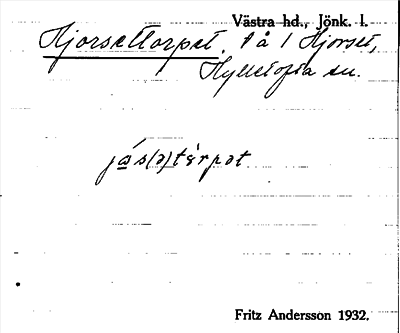 Västra hd., Jönk. l.
Hjorsettorpet. 1 å 1 Hjorset,
Hylletofta sn.
jás(ə)tèrpət
Fritz Andersson 1932.